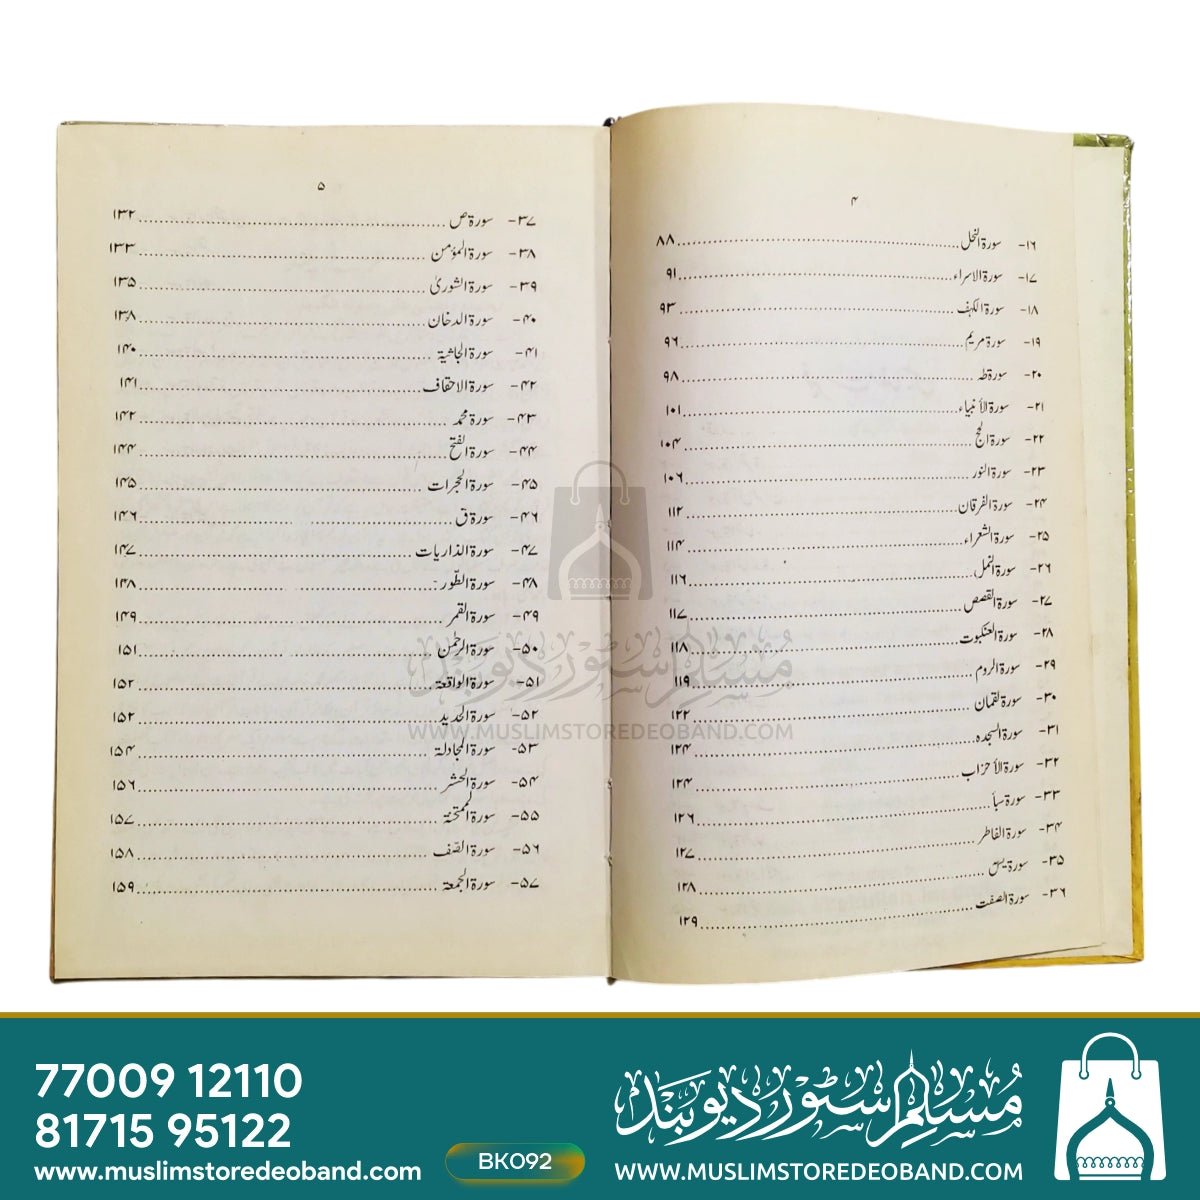 ۴
۱۶- سورۃ النحل ۸۸
۱۷- سورۃ الاسراء ۹۱
۱۸- سورۃ الکہف ۹۳
۱۹- سورۃ مریم ۹۶
۲۰- سورۃ طہ ۹۸
۲۱- سورۃ الأنبیاء ۱۰۱
۲۲- سورۃ الحج ۱۰۴
۲۳- سورۃ النور ۱۰۶
۲۴- سورۃ الفرقان ۱۱۲
۲۵- سورۃ الشعراء ۱۱۴
۲۶- سورۃ النمل ۱۱۶
۲۷- سورۃ القصص ۱۱۷
۲۸- سورۃ العنکبوت ۱۱۸
۲۹- سورۃ الروم ۱۱۹
۳۰- سورۃ لقمان ۱۲۲
۳۱- سورۃ السجدہ ۱۲۴
۳۲- سورۃ الأحزاب ۱۲۴
۳۳- سورۃ سبأ ۱۲۶
۳۴- سورۃ الفاطر ۱۲۷
۳۵- سورۃ یٰس ۱۲۸
۳۶- سورۃ الصفت ۱۲۹
۵
۳۷- سورۃ ص ۱۳۲
۳۸- سورۃ المؤمن ۱۳۳
۳۹- سورۃ الشوریٰ ۱۳۵
۴۰- سورۃ الدخان ۱۳۸
۴۱- سورۃ الجاثیۃ ۱۴۰
۴۲- سورۃ الاحقاف ۱۴۱
۴۳- سورۃ محمد ۱۴۲
۴۴- سورۃ الفتح ۱۴۴
۴۵- سورۃ الحجرات ۱۴۵
۴۶- سورۃ ق ۱۴۶
۴۷- سورۃ الذاریات ۱۴۷
۴۸- سورۃ الطّور ۱۴۸
۴۹- سورۃ القمر ۱۴۹
۵۰- سورۃ الرحمٰن ۱۵۱
۵۱- سورۃ الواقعۃ ۱۵۲
۵۲- سورۃ الحدید ۱۵۲
۵۳- سورۃ المجادلۃ ۱۵۴
۵۴- سورۃ الحشر ۱۵۶
۵۵- سورۃ الممتحنۃ ۱۵۷
۵۶- سورۃ الصّف ۱۵۸
۵۷- سورۃ الجمعۃ ۱۵۹
مُسلم سٹور دیوبند
WWW.MUSLIMSTOREDEOBAND.COM
77009 12110
81715 95122
www.muslimstoredeoband.com
BK092
مُسلم سٹور دیوبند
WWW.MUSLIMSTOREDEOBAND.COM